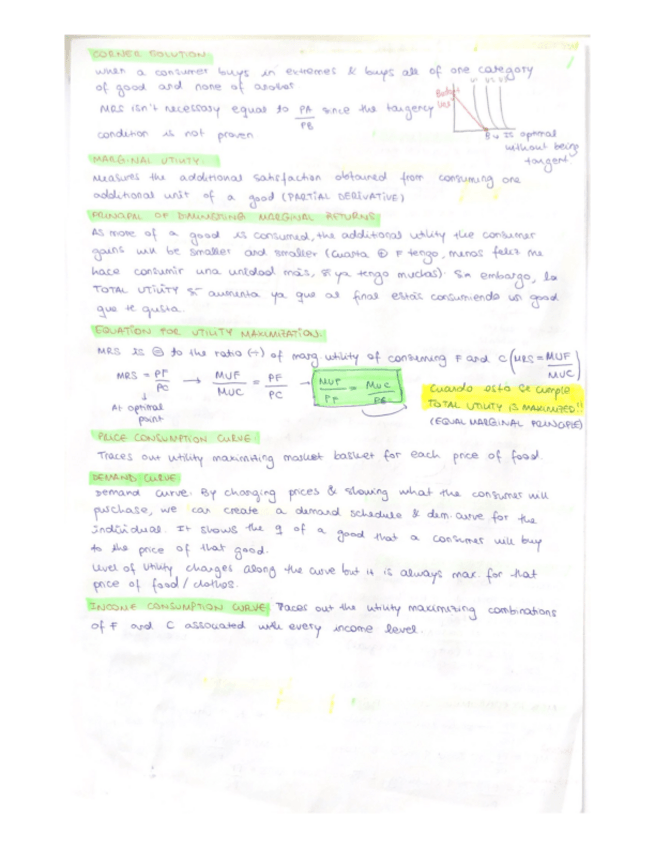 CORNER SOLUTION:
when a consumer buys in extremes & buys all of one category
of good and none of another
MRS isn't necessary equal to PA/PB since the tangency
condition is not proven
Budget
line
U1 U2 U3
B is optimal
without being
tangent
MARGINAL UTILITY:
Measures the additional satisfaction obtained from consuming one
additional unit of a good (PARTIAL DERIVATIVE)
PRINCIPAL OF DIMINISHING MARGINAL RETURNS
As more of a good is consumed, the additional utility the consumer
gains will be smaller and smaller (cuanta ⊕ F tengo, menos feliz me
hace consumir una unidad más, si ya tengo muchas). Sin embargo, la
TOTAL UTILITY sí aumenta ya que al final estás consumiendo un good
que te gusta.
EQUATION FOR UTILITY MAXIMIZATION:
MRS is ⊜ to the ratio (÷) of marg utility of consuming F and C (MRS = MUF/MUC)
MRS = PF/PC → MUF/MUC = PF/PC → MUF/PF = MUC/PC
↓
At optimal
point
Cuando esto se cumple
TOTAL UTILITY IS MAXIMIZED!!
(EQUAL MARGINAL PRINCIPLE)
PRICE CONSUMPTION CURVE:
Traces out utility maximizing market basket for each price of food.
DEMAND CURVE:
Demand curve. By changing prices & showing what the consumer will
purchase, we can create a demand schedule & dem. curve for the
individual. It shows the q of a good that a consumer will buy
to the price of that good.
Level of utility changes along the curve but it is always max. for that
price of food/clothes.
INCOME CONSUMPTION CURVE: Traces out the utility maximizing combinations
of F and C associated with every income level.